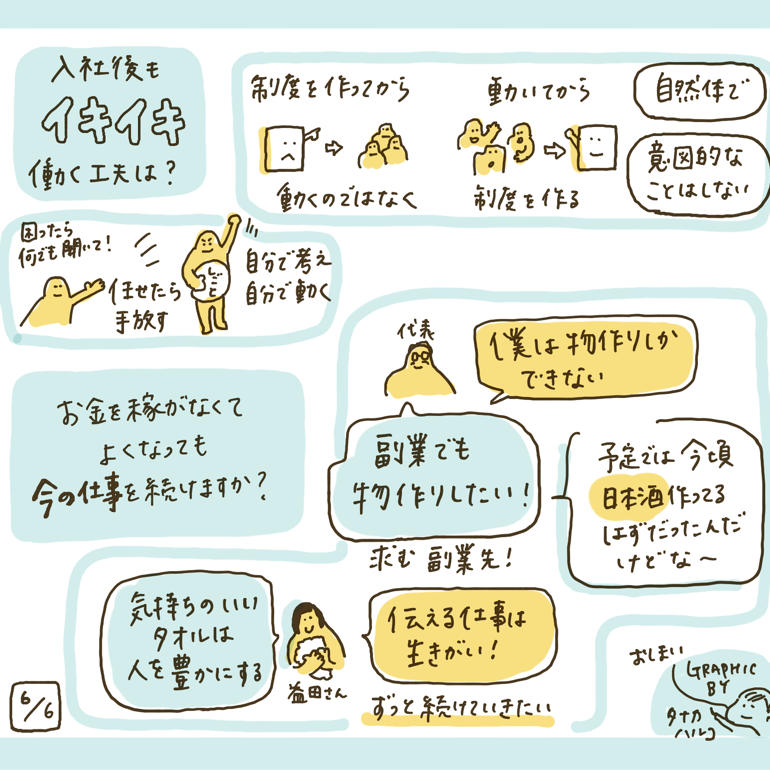 入社後も
イキイキ
働く工夫は?
制度を作ってから
動くのではなく
動いてから
制度を作る
自然体で
意図的な
ことはしない
困ったら
何でも聞いて!
任せたら
手放す
自分で考え
自分で動く
代表
僕は物作りしか
できない
お金を稼がなくて
よくなっても
今の仕事を続けますか?
副業でも
物作りしたい!
求む副業先!
予定では今頃
日本酒作ってる
はずだったんだ
けどな〜
気持ちのいい
タオルは
人を豊かにする
益田さん
伝える仕事は
生きがい!
ずっと続けていきたい
6/6
おしまい
GRAPHIC
BY
タナカ
ハルコ